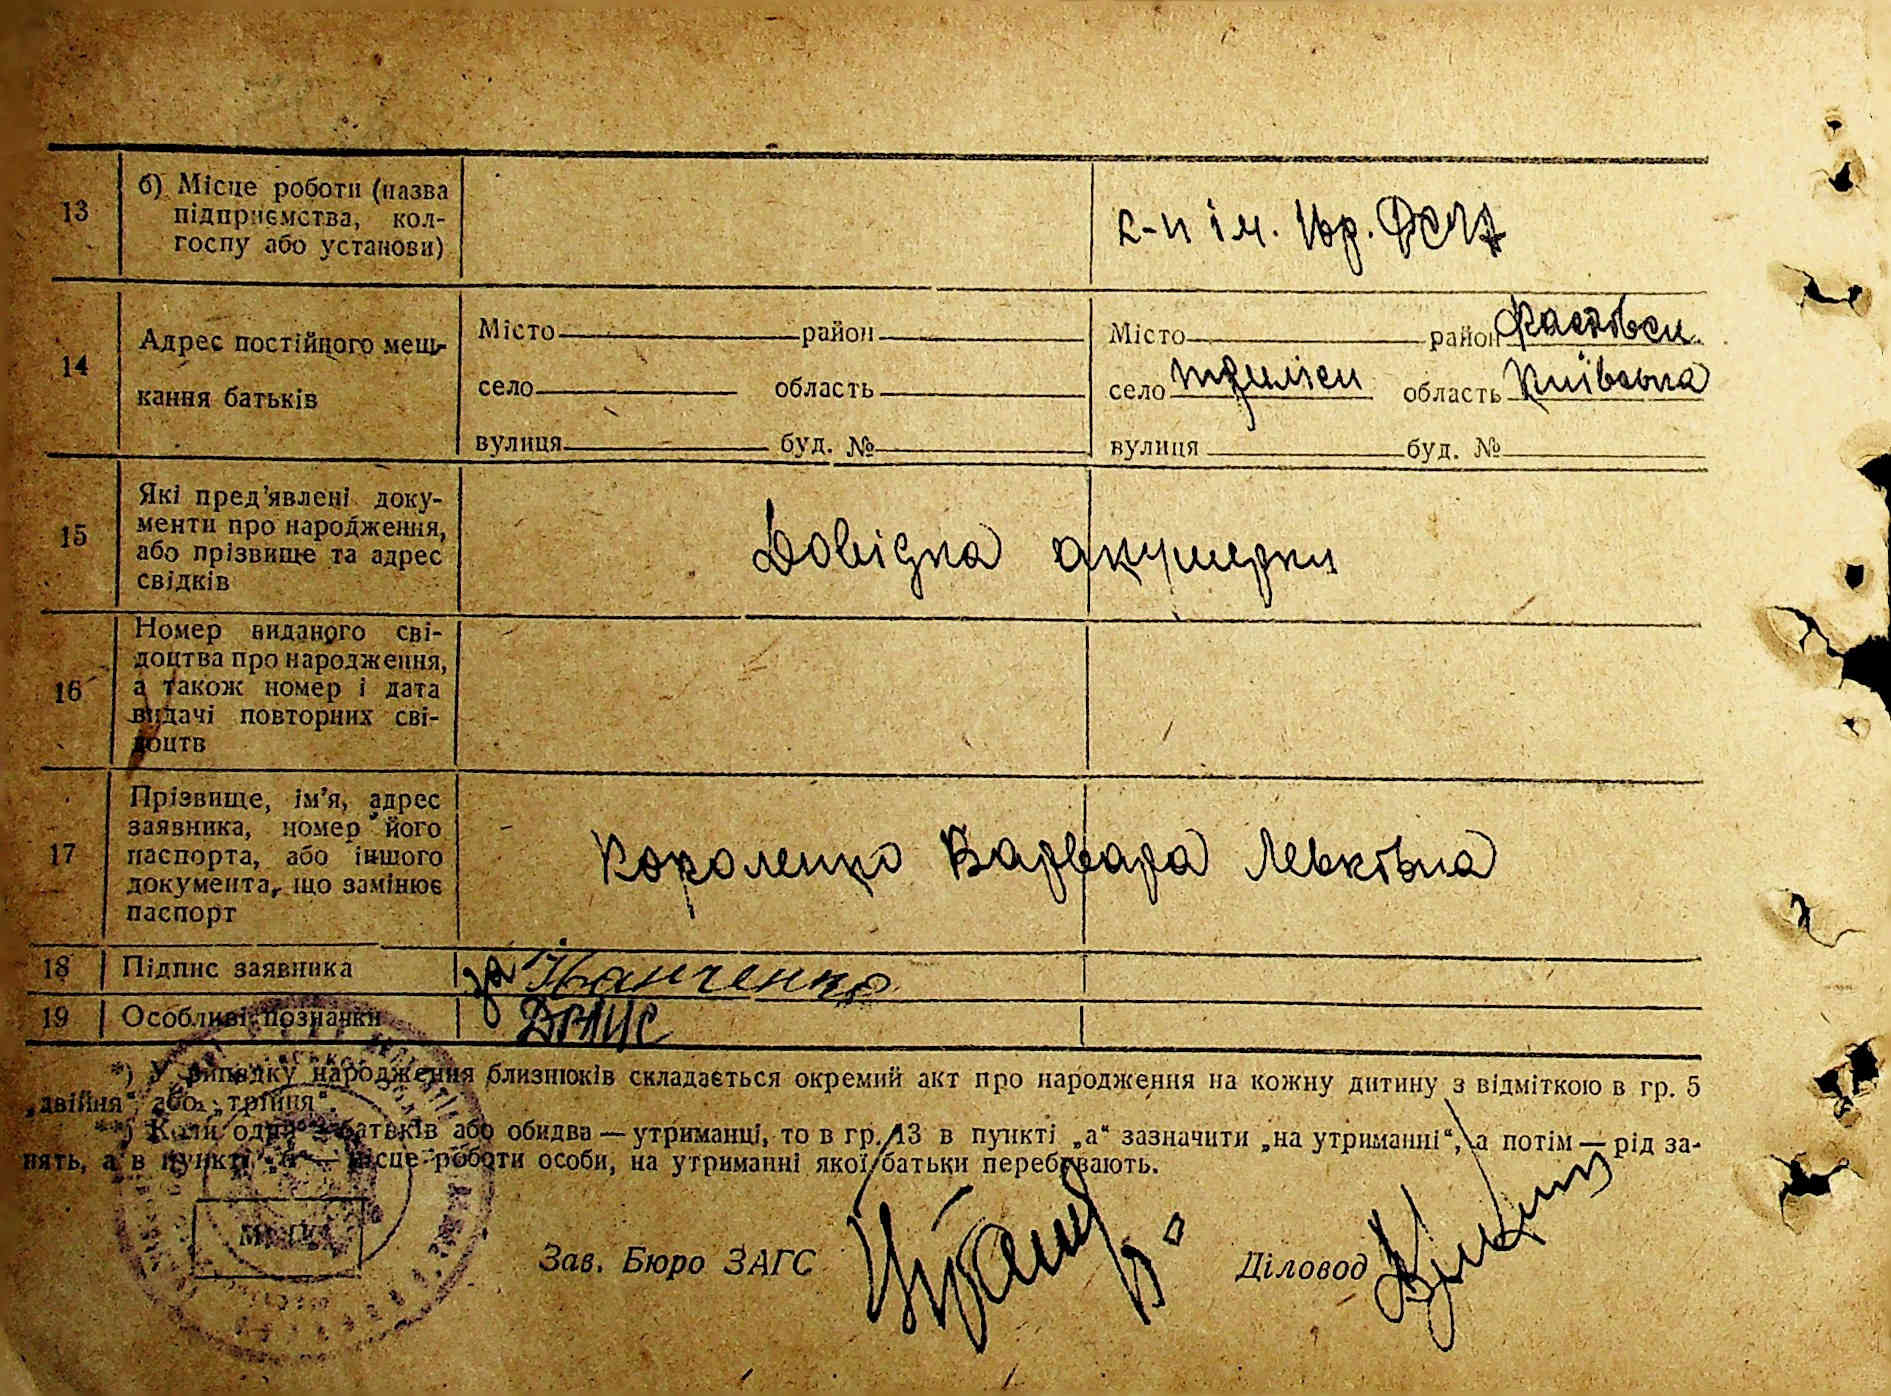 13
б) Місце роботи (назва
підприємства, кол-
госпу або установи)
к-п ім.
14
Адрес постійного меш-
кання батьків
Місто район
село область
вулиця буд. №
Місто район Фастівськ.
село область Київська
вулиця буд. №
15
Які пред'явлені доку-
менти про народження,
або прізвище та адрес
свідків
Довідка акушерки
16
Номер виданого сві-
доцтва про народження,
а також номер і дата
видачі повторних сві-
доцтв
17
Прізвище, ім'я, адрес
заявника, номер його
паспорта, або іншого
документа, що замінює
паспорт
Короленко Варвара Левківна
18 Підпис заявника
за Іванченко
19 Особливі позначки
*) У випадку народження близнюків складається окремий акт про народження на кожну дитину з відміткою в гр. 5
„двійня“, або „трійня“.
**) Коли один з батьків або обидва — утриманці, то в гр. 13 в пункті „а“ зазначити „на утриманні“, а потім — рід за-
нять, а в пункті „б“ — місце роботи особи, на утриманні якої батьки перебувають.
Зав. Бюро ЗАГС
Діловод